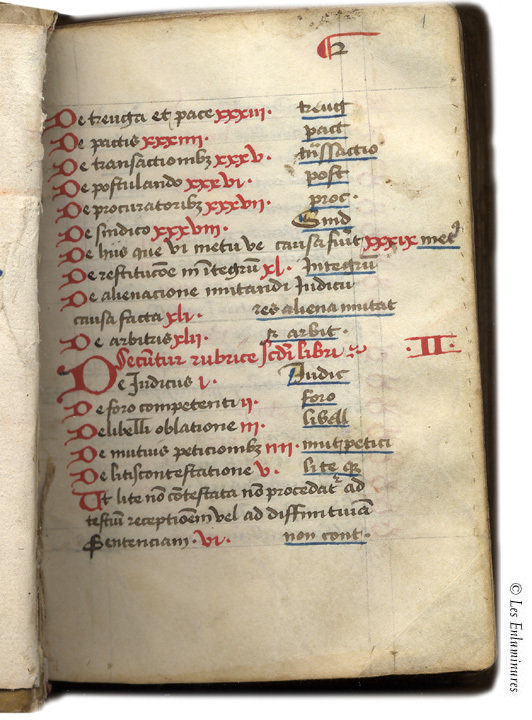 2
De treuga et pace xxxiii. treug
De pactis xxxiiii. pact
De transactionibz xxxv. trassactio
De postulando xxxvi. post
De procuratoribz xxxvii. proc.
De sindico xxxviii. Sind
De hiis que vi metu ve causa fiunt xxxix met
De restitucoe in integrum xl. Integru
De alienacione mutandi Iudicii
causa facta xli. res aliena mutat
De arbitris xlii. arbit.
Secuntur rubrice scdi libri .II.
De Iudiciis i. Iudic
De foro competenti ii. foro
De libelli oblatione iii. libell
De mutuis peticionibz iiii. mut petici
De litis contestatione v. lite
Ut lite no contestata non procedat ad
testium receptioem vel ad diffinituia
Sentenciam. vi. non cont.
© Les Enluminures